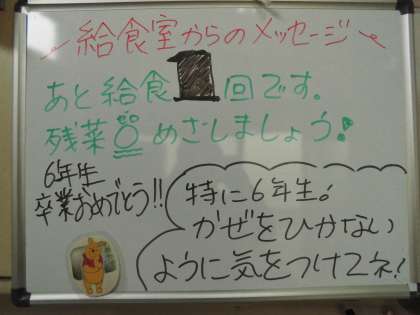 給食室からのメッセージ
あと給食1回です。
残菜0めざしましょう!
6年生
卒業おめでとう!!
特に6年生!
かぜをひかない
ように気をつけてネ!